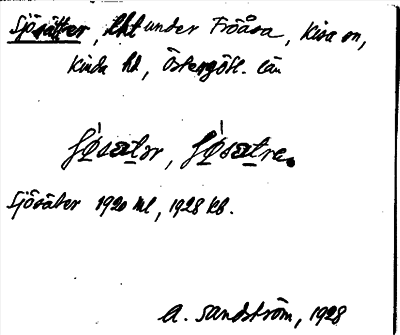 Sjösätter, lht under Fröåsa, Kisa sn,
Kinda hd, Östergötl. län
ʃø̀satər, ʃø̀satra.
Sjösäter 1920 ml, 1928 kb.
A. Sandström, 1928